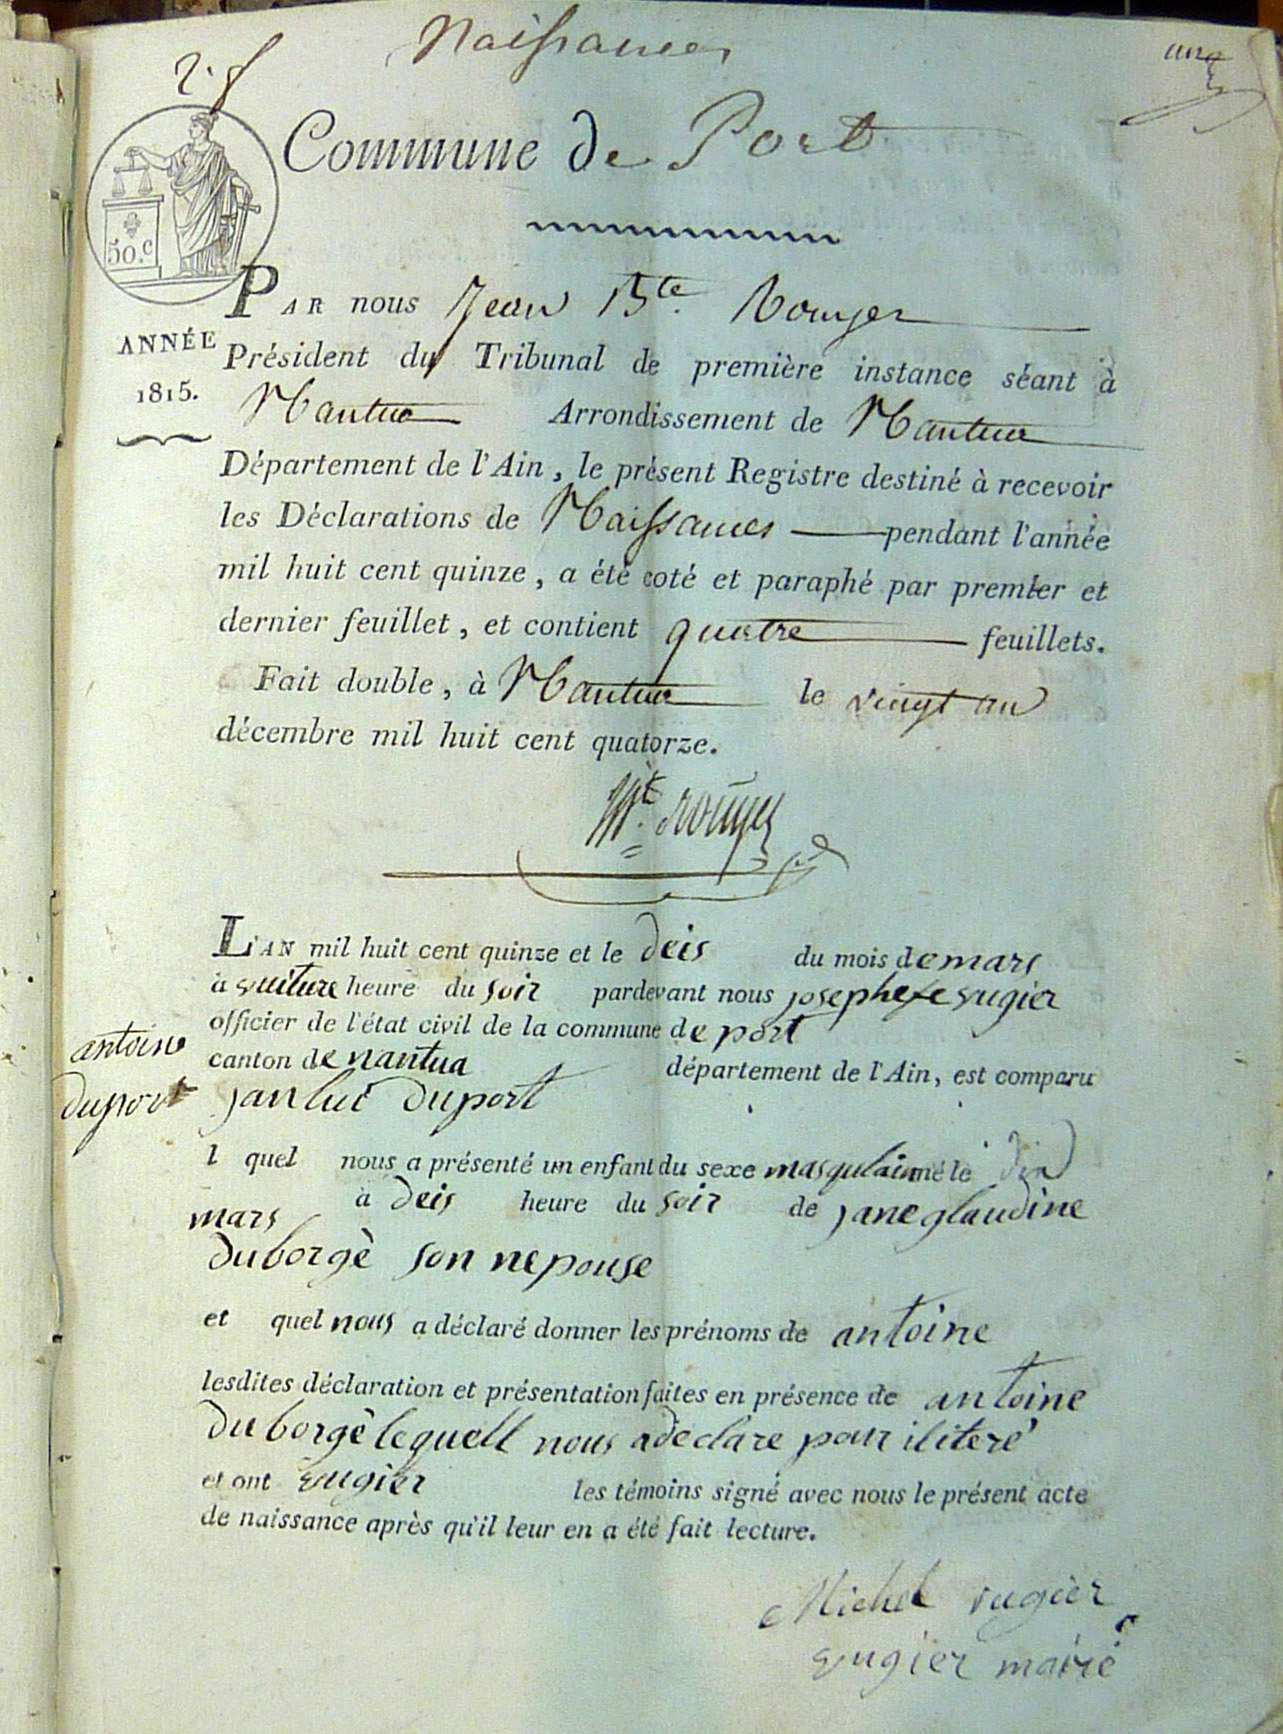 Naissances
2. f
Commune de Port
50.c
ANNÉE
1815.
PAR nous Jean Bte. Rouyer
Président du Tribunal de première instance séant à
Nantua Arrondissement de Nantua
Département de l'Ain, le présent Registre destiné à recevoir
les Déclarations de Naissances pendant l'année
mil huit cent quinze, a été coté et paraphé par premier et
dernier feuillet, et contient quatre feuillets.
Fait double, à Nantua le vingt un
décembre mil huit cent quatorze.
Bt. Rouyer
L'AN mil huit cent quinze et le deis du mois de mars
à heure du soir pardevant nous josephe vugier
officier de l'état civil de la commune de port
canton de nantua département de l'Ain, est comparu
antoine
duport
janlui duport
l quel nous a présenté un enfant du sexe masqulain né le
mars à deis heure du soir de jane glaudine
duborgè son nepouse
et quel nous a déclaré donner les prénoms de antoine
lesdites déclaration et présentation faites en présence de antoine
duborgè lequell nous a declare pour iliteré
et ont vugier les témoins signé avec nous le présent acte
de naissance après qu'il leur en a été fait lecture.
Michel vugier
vugier mairé